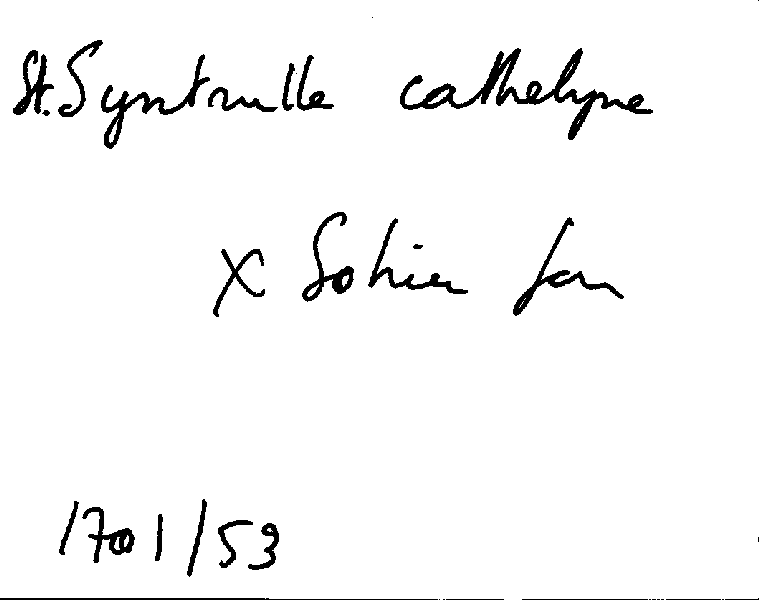 St. Syntrulle cathelyne
X Sohier Jan
1701/53